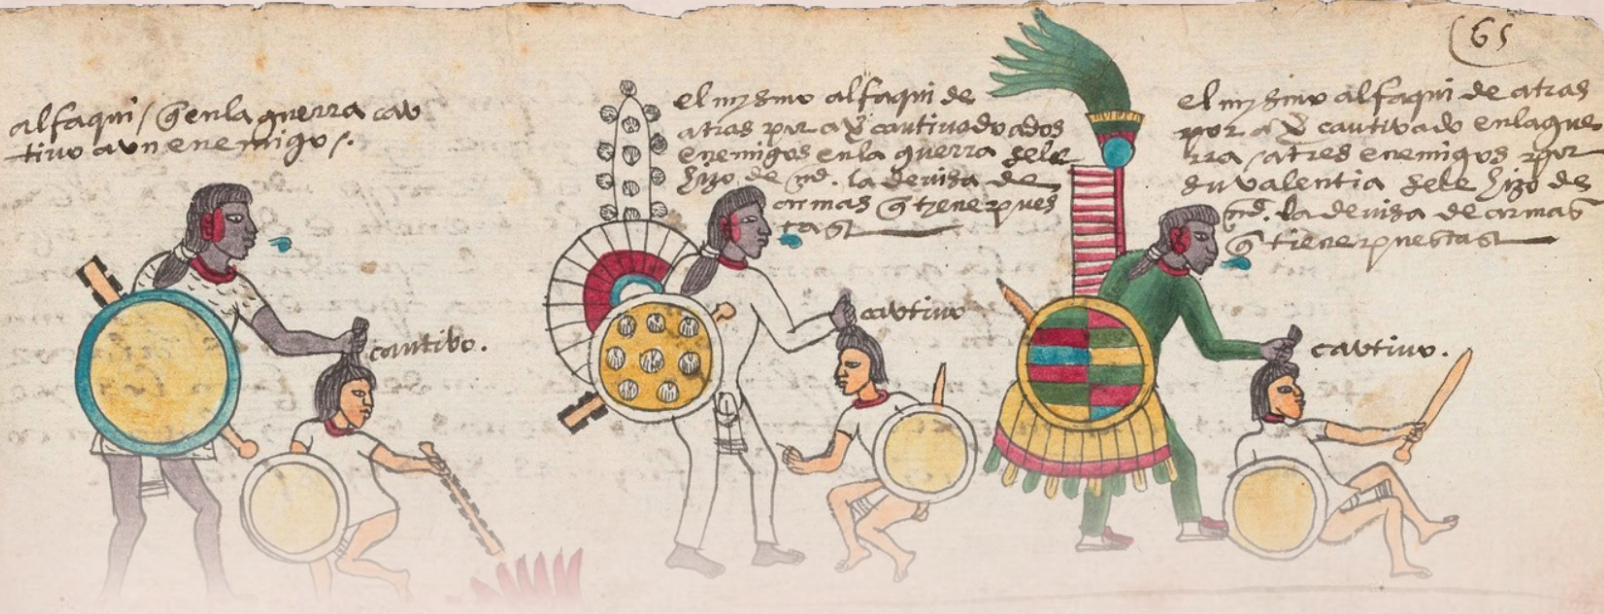 alfaqui / q̄ en la guerra cau
tivo a un enemigo /.
cautibo.
el mysmo alfaqui de
atras por a v̄ cautivado a dos
enemigos en la guerra sele
hizo de md. la devisa de
armas q̄ tiene pues
tas
cautivo
65
el mysmo alfaqui de atras
por a v̄ cautivado en la gue
rra / a tres enemigos y por
su valentia sele hizo de
md. la devisa de armas
q̄ tiene puestas
cautivo.